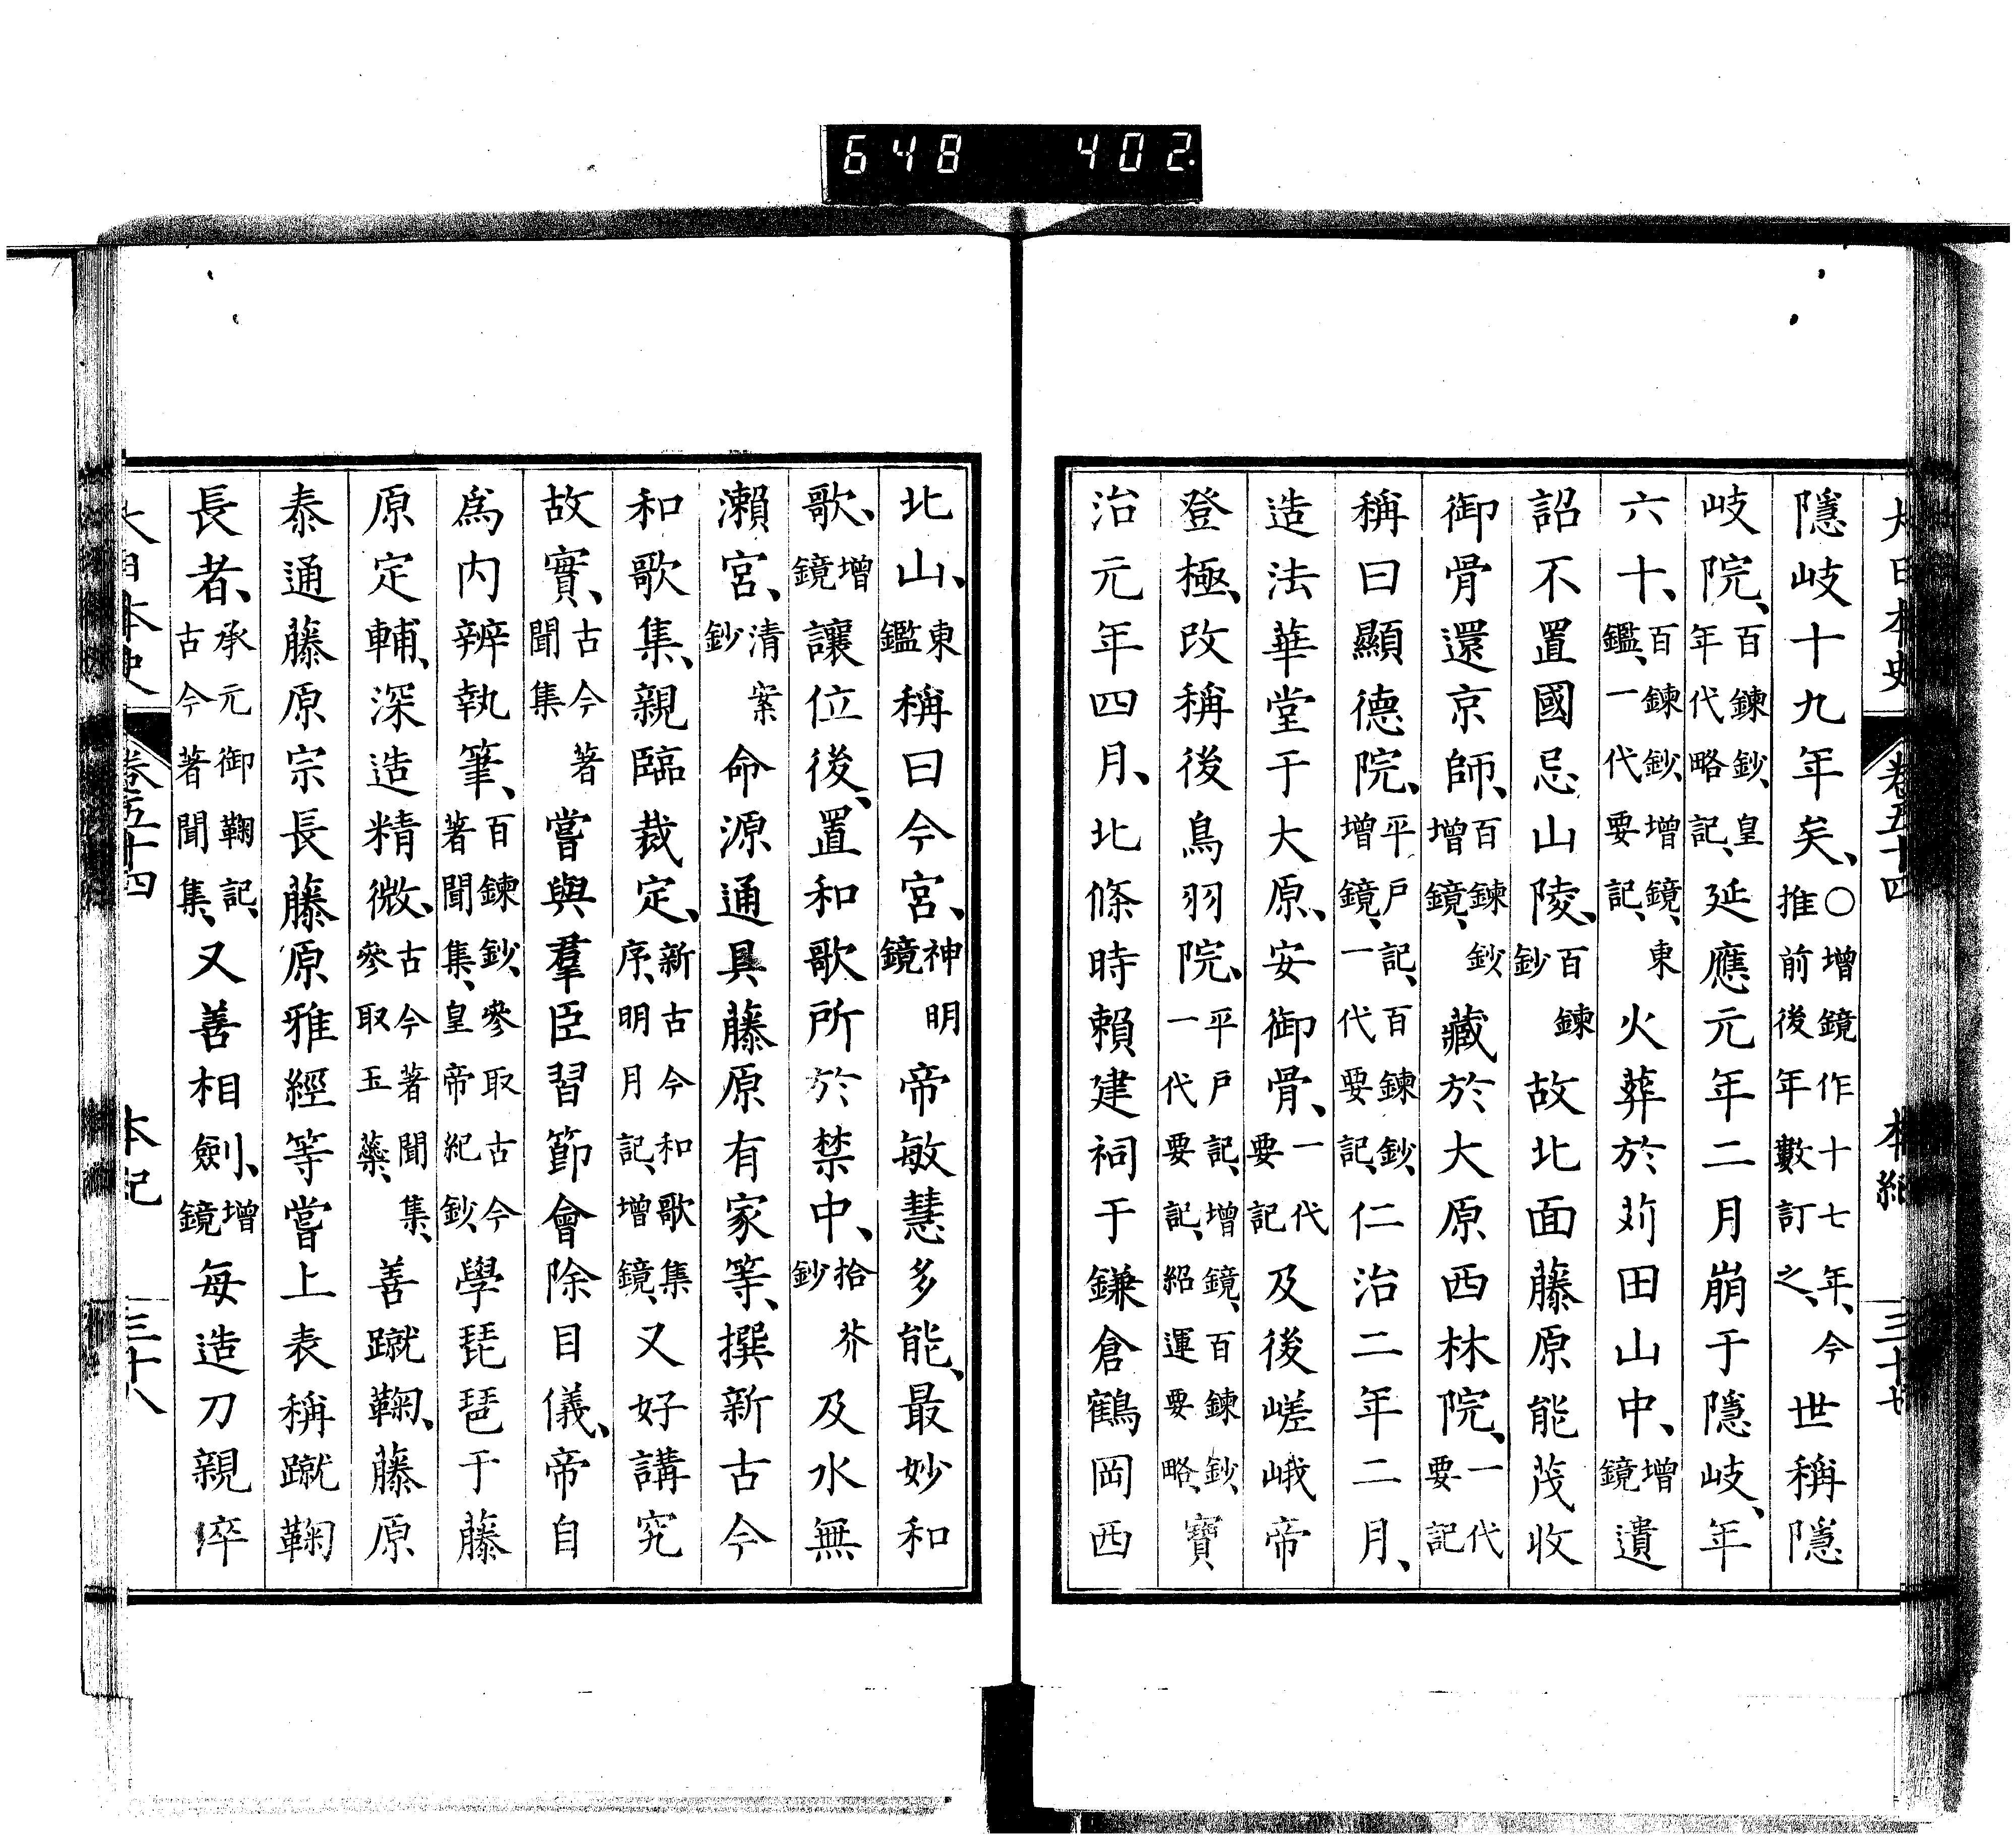 648 402
大日本史 卷五十四 本紀 三十七
隱岐十九年矣、○增鏡作十七年、今推前後年數訂之、世稱隱
岐院、百鍊鈔、皇年代略記、延應元年二月崩于隱岐、年
六十、百鍊鈔、增鏡、東鑑、一代要記、火葬於苅田山中、增鏡遺
詔不置國忌山陵、百鍊鈔故北面藤原能茂收
御骨還京師、百鍊鈔增鏡、藏於大原西林院、一代要記
稱曰顯德院、平戶記、百鍊鈔、增鏡、一代要記、仁治二年二月、
造法華堂于大原、安御骨、一代要記及後嵯峨帝
登極、改稱後鳥羽院、平戶記、增鏡、百鍊鈔、一代要記、紹運要略、寶
治元年四月、北條時賴建祠于鎌倉鶴岡西
北山、東鑑稱曰今宮、神明鏡帝敏慧多能、最妙和
歌、增鏡讓位後、置和歌所於禁中、拾芥鈔及水無
瀨宮、清案鈔命源通具藤原有家等、撰新古今
和歌集、親臨裁定、新古今和歌集序、明月記、增鏡、又好講究
故實、古今著聞集嘗與羣臣習節會除目儀、帝自
爲內辨執筆、百鍊鈔、參取古今著聞集、皇帝紀鈔、學琵琶于藤
原定輔、深造精微、古今著聞集、參取玉蘂、善蹴鞠、藤原
泰通藤原宗長藤原雅經等嘗上表稱蹴鞠
長者、承元御鞠記、古今著聞集、又善相劍、增鏡每造刀親淬
大日本史 卷五十四 本紀 三十八